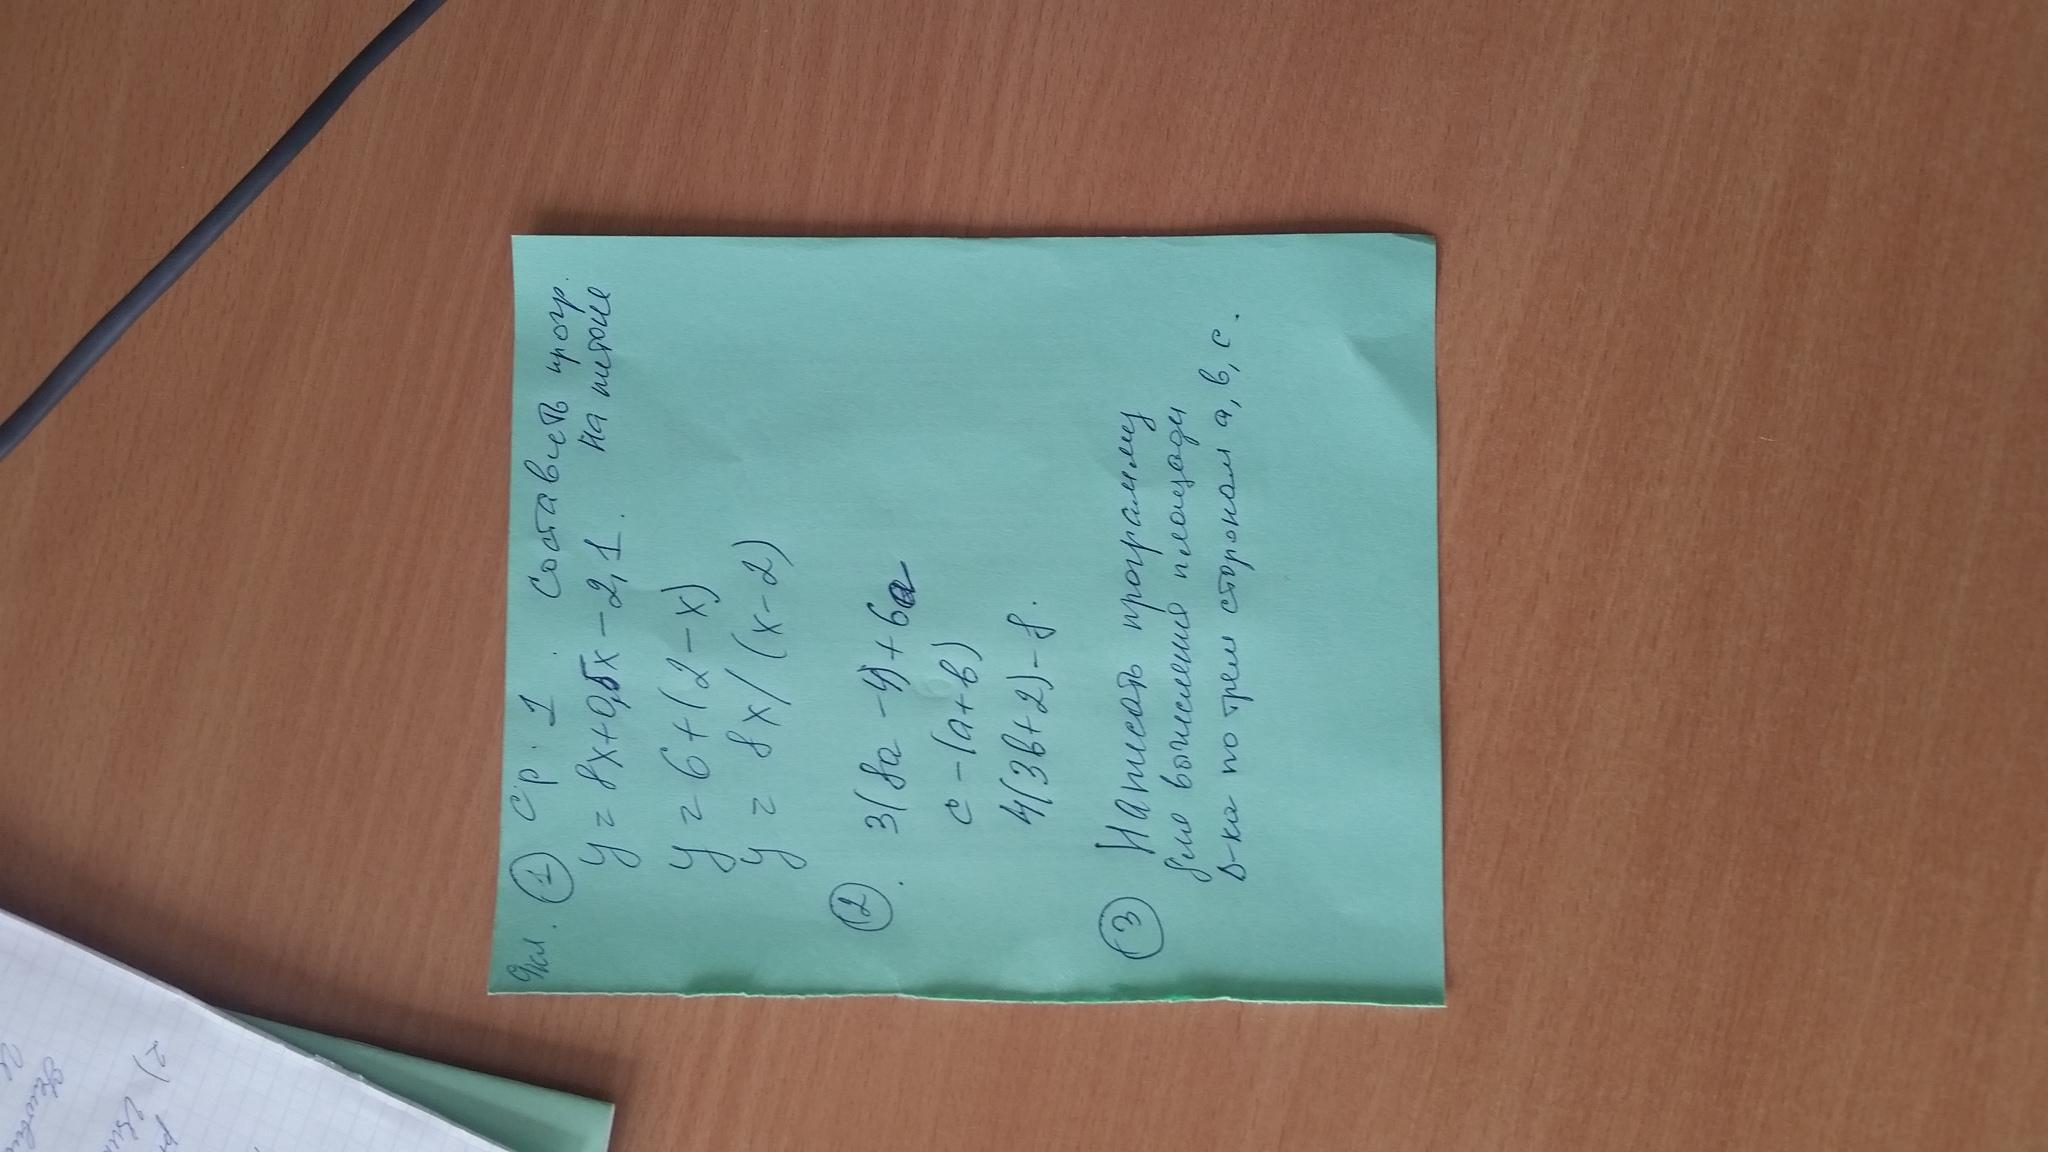 9кл. ① С.р. 1. Составить прогр.
y = 8x+0,5x-2,1. на питоне
y = 6+(2-x)
y = 8x/(x-2)
②. 3(8a-4)+6a
c-(a+b)
4(3b+2)-8.
③ Написать программу
для вычисления площади
Δ-ка по трем сторонам a, b, c.
2)